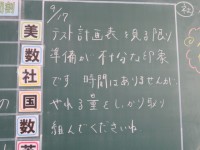 9/17
テスト計画表を見る限り
準備が不十分な印象
です 時間はありませんが、
やれる量をしっかり取り
組んでくださいね
美
数
社
国
数
英
の